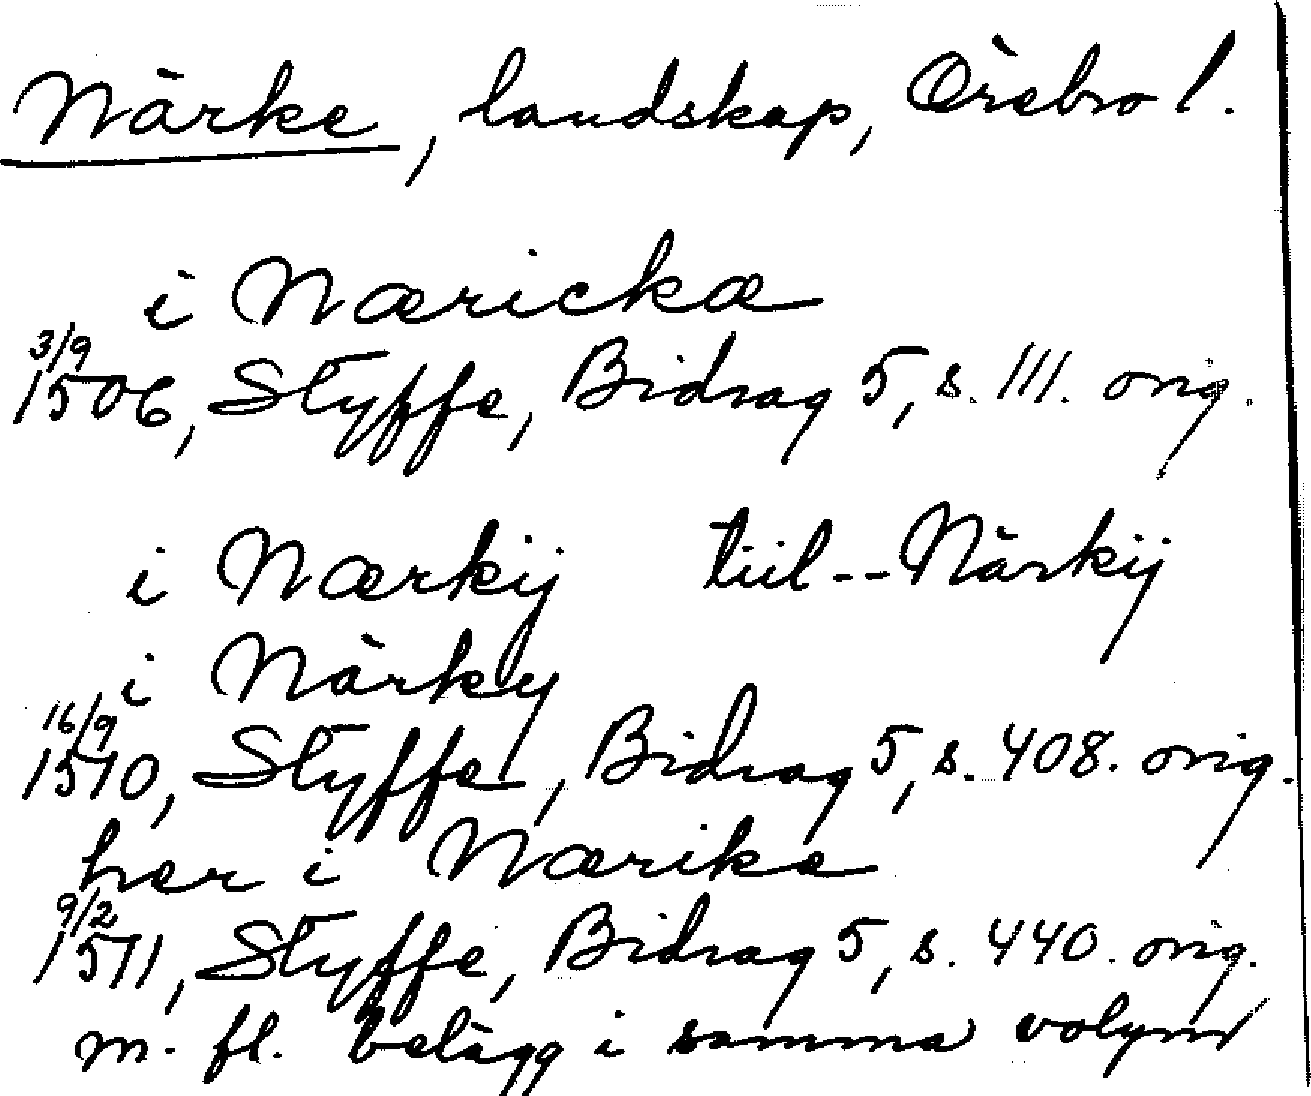 Närke, landskap, Örebro l.
i Nærickæ
3/9
1506, Styffe, Bidrag 5, s. 111. orig.
i Nærkij tiil -- Närkij
i Närky
16/9
1510, Styffe, Bidrag 5, s. 408. orig.
her i Nærike
9/2
1511, Styffe, Bidrag 5, s. 440. orig.
m. fl. belägg i samma volym